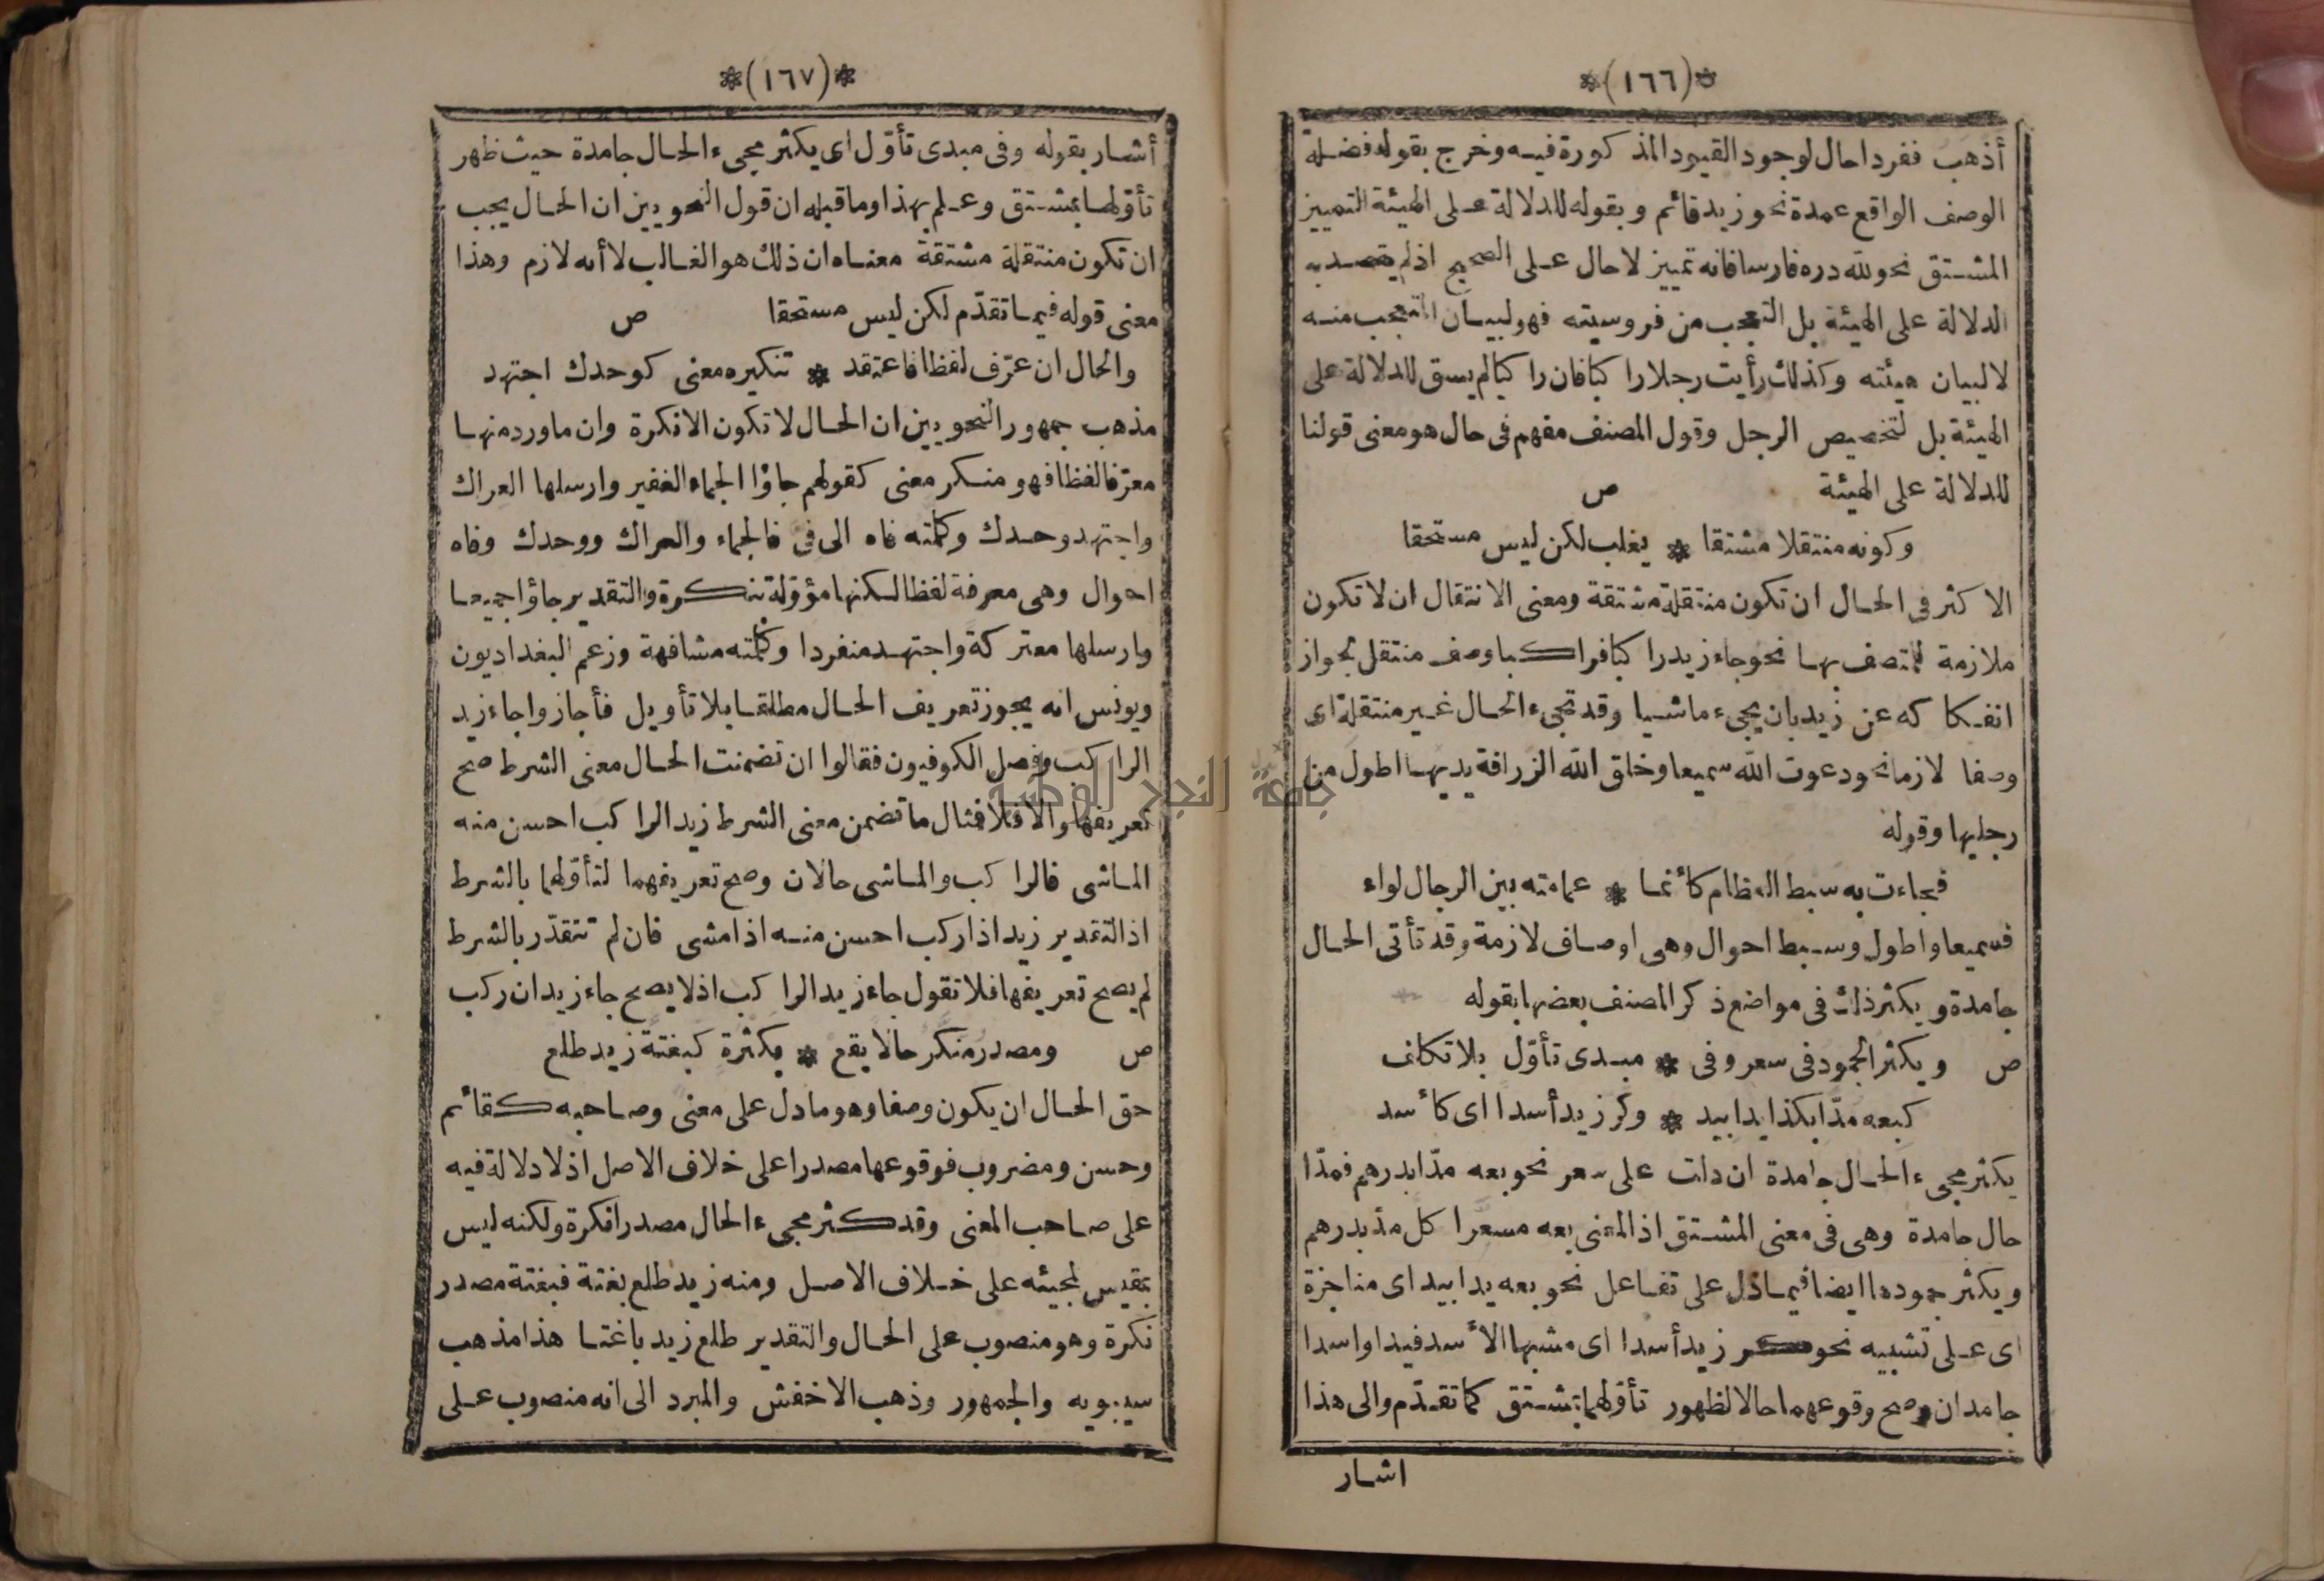 *(١٦٦)*
أذهب ففردا حال لوجود القيود المذكورة فيه وخرج بقوله فضلة
الوصف الواقع عمدة نحو زيد قائم وبقوله للدلالة على الهيئة التمييز
المشتق نحو لله دره فارسا فانه تمييز لا حال على الصحيح اذ لم يقصد به
الدلالة على الهيئة بل التعجب من فروسيته فهو لبيان المتعجب منه
لا لبيان هيئته وكذلك رأيت رجلا راكبا فان راكبا لم يسق للدلالة على
الهيئة بل لتخصيص الرجل وقول المصنف مفهم فى حال هو معنى قولنا
للدلالة على الهيئة ص
وكونه منتقلا مشتقا * يغلب لكن ليس مستحقا
الاكثر فى الحال ان تكون منتقلة مشتقة ومعنى الانتقال ان لا تكون
ملازمة للمتصف بها نحو جاء زيد راكبا فراكبا وصف منتقل لجواز
انفكاكه عن زيد بان يجىء ماشيا وقد تجىء الحال غير منتقلة اى
وصفا لازما نحو دعوت الله سميعا وخلق الله الزرافة يديها اطول من
رجليها وقوله
فجاءت به سبط العظام كأنما * عمامته بين الرجال لواء
فسميعا واطول وسبط احوال وهى اوصاف لازمة وقد تأتى الحال
جامدة ويكثر ذلك فى مواضع ذكر المصنف بعضها بقوله
ص ويكثر الجمود فى سعر وفى * مبدى تأوّل بلا تكلف
كبعه مدّا بكذا يدا بيد * وكر زيد أسدا اى كأسد
يكثر مجىء الحال جامدة ان دلت على سعر نحو بعه مدّا بدرهم فمدّا
حال جامدة وهى فى معنى المشتق اذ المعنى بعه مسعرا كل مد بدرهم
ويكثر جمودها ايضا فيما دل على تفاعل نحو بعه يدا بيد اى مناجزة
اى على تشبيه نحو كر زيد أسدا اى مشبها الأسد فيدا واسدا
جامدان وصح وقوعهما حالا لظهور تأوّلهما بمشتق كما تقدّم والى هذا
اشار
*(١٦٧)*
أشار بقوله وفى مبدى تأوّل اى يكثر مجىء الحال جامدة حيث ظهر
تأوّلها بمشتق وعلم بهذا وما قبله ان قول النحويين ان الحال يجب
ان تكون منتقلة مشتقة معناه ان ذلك هو الغالب لا أنه لازم وهذا
معنى قوله فيما تقدّم لكن ليس مستحقا ص
والحال ان عرّف لفظا فاعتقد * تنكيره معنى كوحدك اجتهد
مذهب جمهور النحويين ان الحال لا تكون الا نكرة وان ما ورد منها
معرّفا لفظا فهو منكر معنى كقولهم جاؤا الجماء الغفير وارسلها العراك
واجتهد وحدك وكلمته فاه الى فى فالجماء والعراك ووحدك وفاه
احوال وهى معرفة لفظا لكنها مؤوّلة بنكرة والتقدير جاؤا جميعا
وارسلها معتركة واجتهد منفردا وكلمته مشافهة وزعم البغداديون
ويونس انه يجوز تعريف الحال مطلقا بلا تأويل فأجازوا جاء زيد
الراكب وفصل الكوفيون فقالوا ان تضمنت الحال معنى الشرط صح
تعريفها والا فلا فمثال ما تضمن معنى الشرط زيد الراكب احسن منه
الماشى فالراكب والماشى حالان وصح تعريفهما لتأوّلهما بالشرط
اذ التقدير زيد اذا ركب احسن منه اذا مشى فان لم تتقدّر بالشرط
لم يصح تعريفها فلا تقول جاء زيد الراكب اذ لا يصح جاء زيد ان ركب
ص ومصدر منكر حالا يقع * بكثرة كبغتة زيد طلع
حق الحال ان يكون وصفا وهو ما دل على معنى وصاحبه كقائم
وحسن ومضروب فوقوعها مصدرا على خلاف الاصل اذ لا دلالة فيه
على صاحب المعنى وقد كثر مجىء الحال مصدرا نكرة ولكنه ليس
بمقيس لمجيئه على خلاف الاصل ومنه زيد طلع بغتة فبغتة مصدر
نكرة وهو منصوب على الحال والتقدير طلع زيد باغتا هذا مذهب
سيبويه والجمهور وذهب الاخفش والمبرد الى انه منصوب على
جامعة النجاح الوطنية